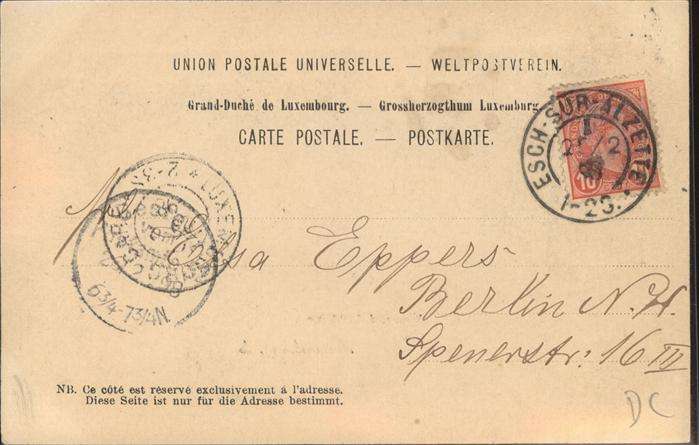 UNION POSTALE UNIVERSELLE. — WELTPOSTVEREIN.
Grand-Duché de Luxembourg. — Grossherzogthum Luxemburg.
CARTE POSTALE. — POSTKARTE.
ESCH-SUR-ALZETTE
1-2S.
10
6¾-7¾N.
Eppers
Berlin N.W.
Spenerstr: 16 III
NB. Ce côté est réservé exclusivement à l'adresse.
Diese Seite ist nur für die Adresse bestimmt.
DC